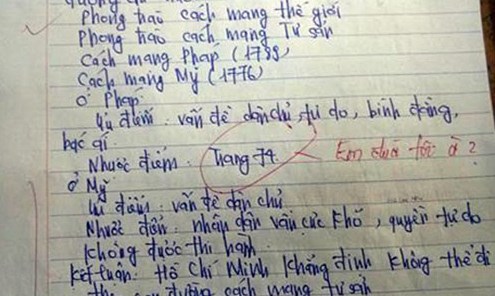 Phong trào cách mạng thế giới
Phong trào cách mạng Tư sản
Cách mạng Pháp (1789)
Cách mạng Mỹ (1776)
Ở Pháp
Ưu điểm: vấn đề dân chủ, tự do, bình đẳng,
bác ái.
Nhược điểm: Trang 74. Em chửi tôi à?
Ở Mỹ
Ưu điểm: vấn đề dân chủ
Nhược điểm: nhân dân vẫn cực khổ, quyền tự do
không được thi hành.
Kết luận: Hồ Chí Minh khẳng định không thể đi
đường cách mạng tư sản